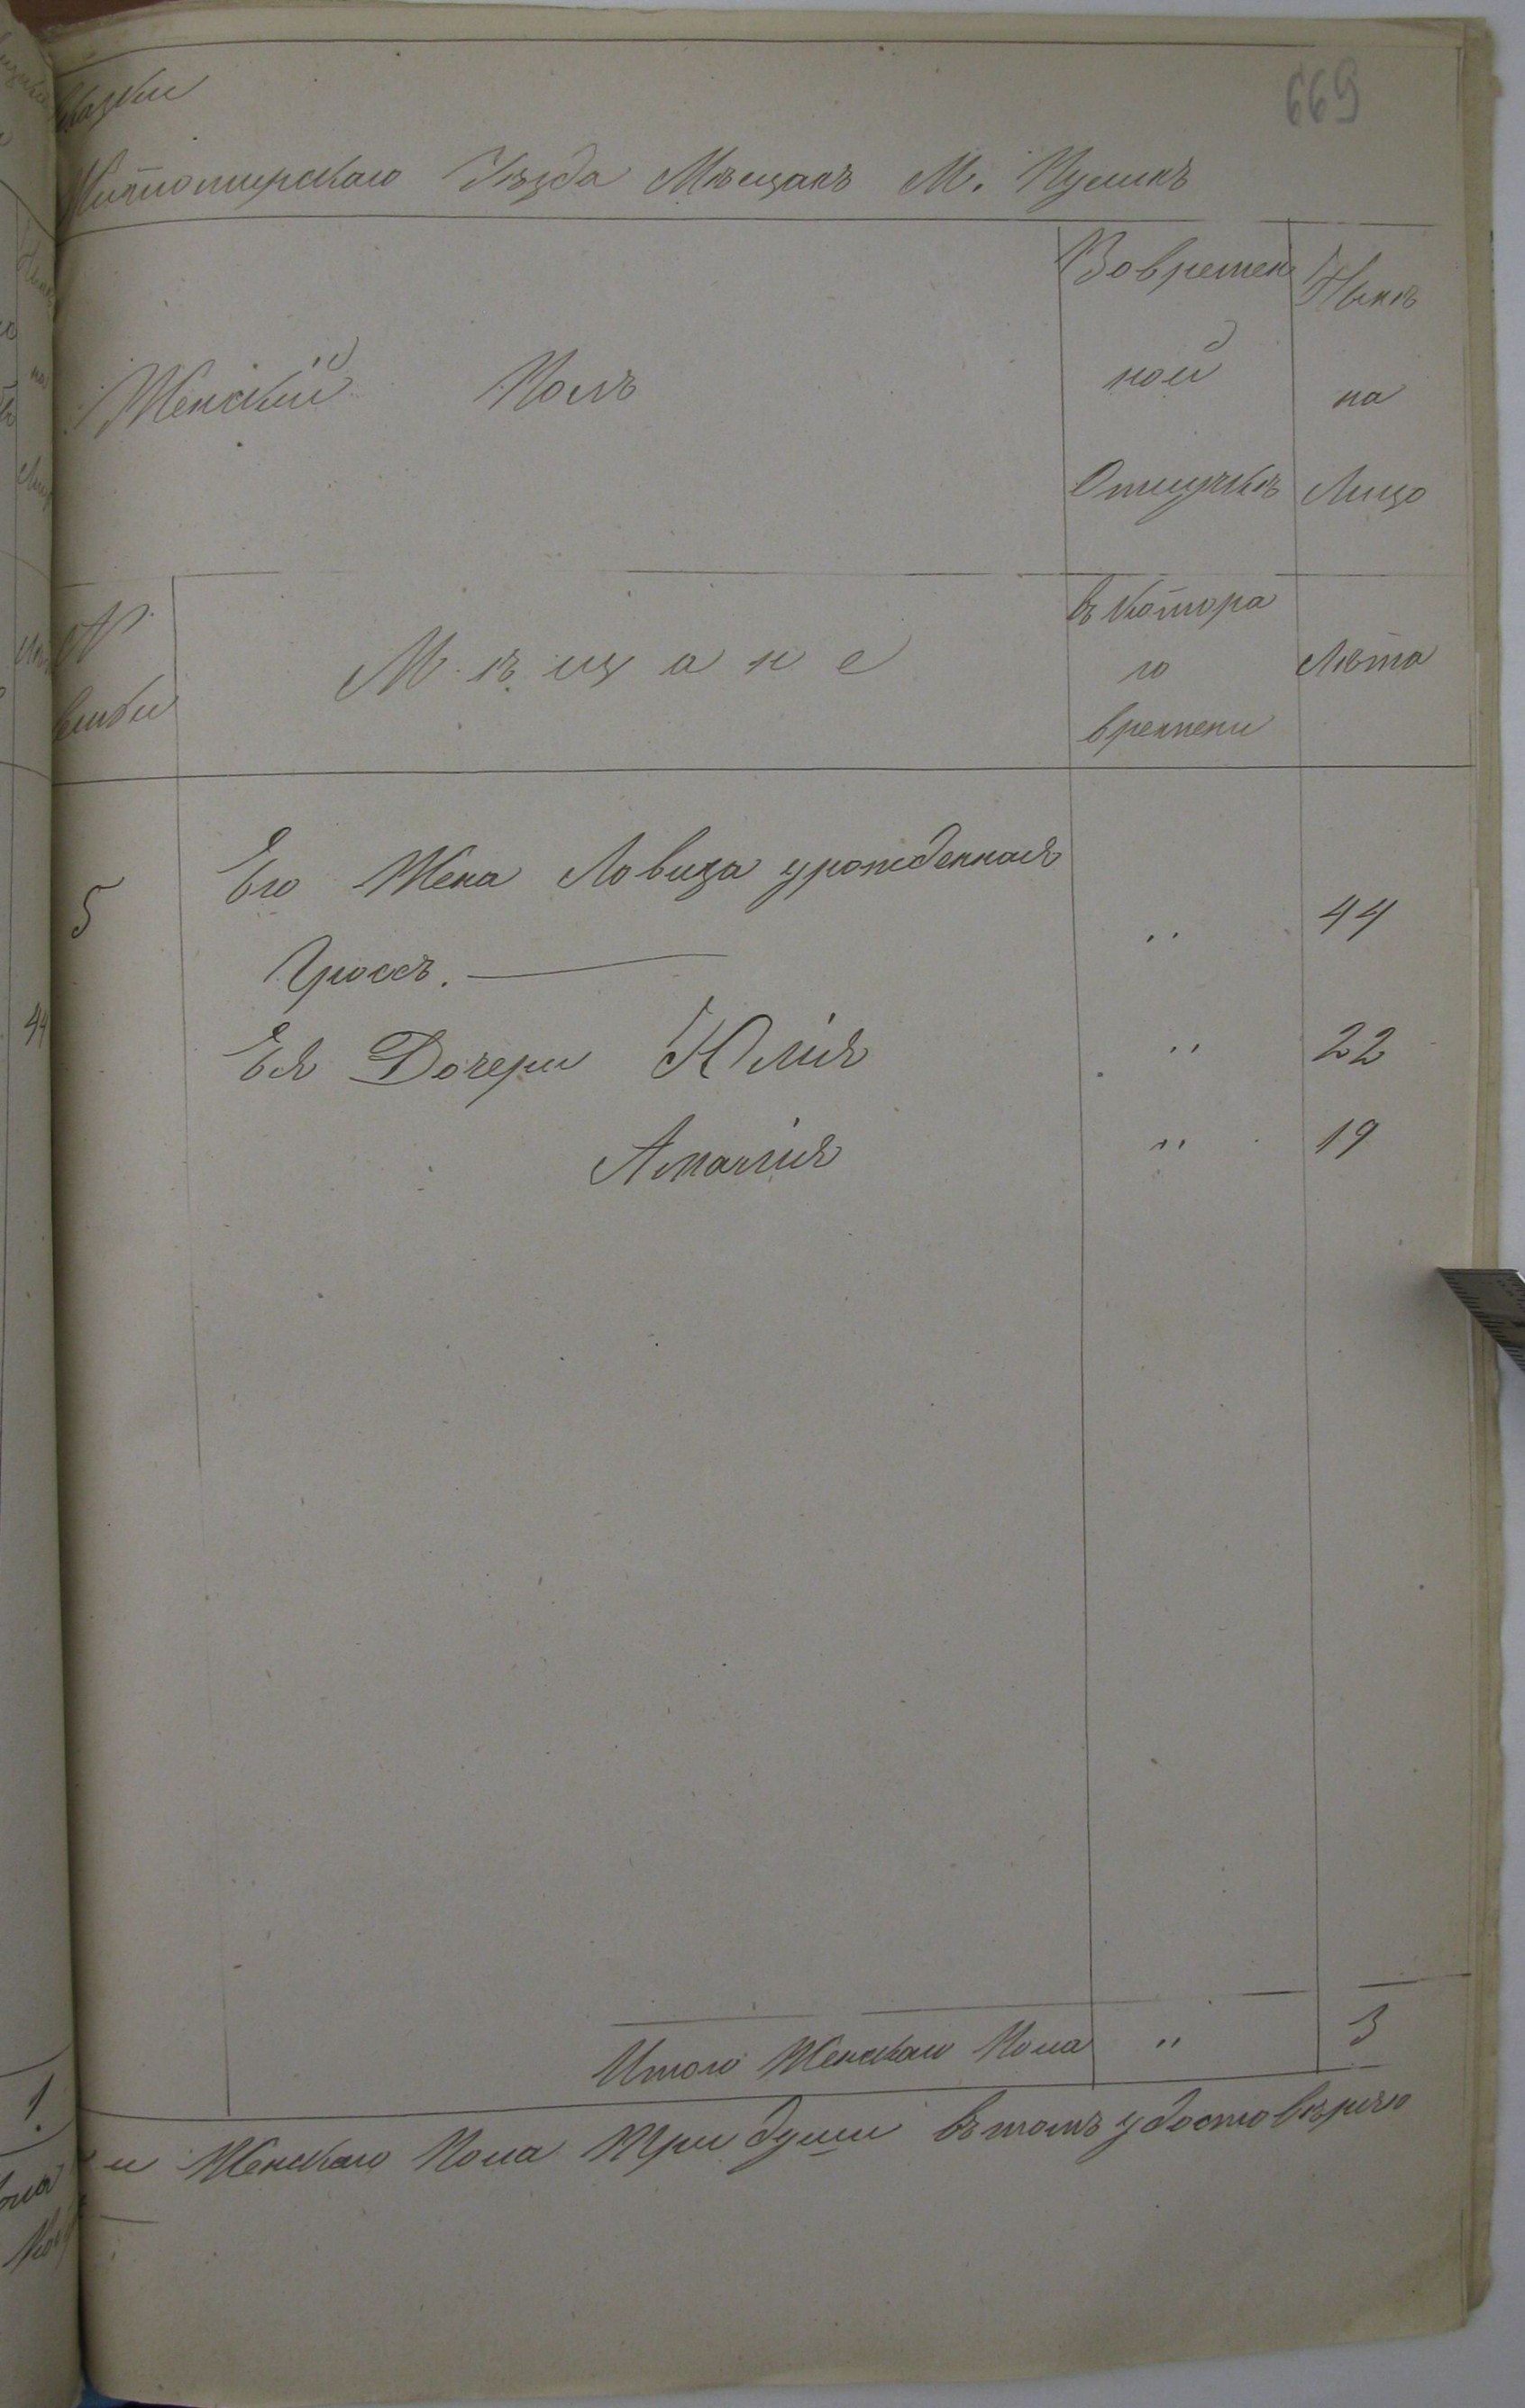 669
сказки
Житомирскаго Уѣзда Мѣщанъ М. Пулинъ
Женскій Полъ
Вовремен
ной
Отлучкѣ
Нынѣ
на
Лицо
№
семьи
Мѣщане
въ котора
го
времени
Лѣта
5 Его Жена Ловиза урожденная
Гроссъ. „ 44
Ея Дочери Юлія „ 22
Амалія „ 19
Итого Женскаго Пола „ 3
и Женскаго Пола три души въ томъ удостовѣряю